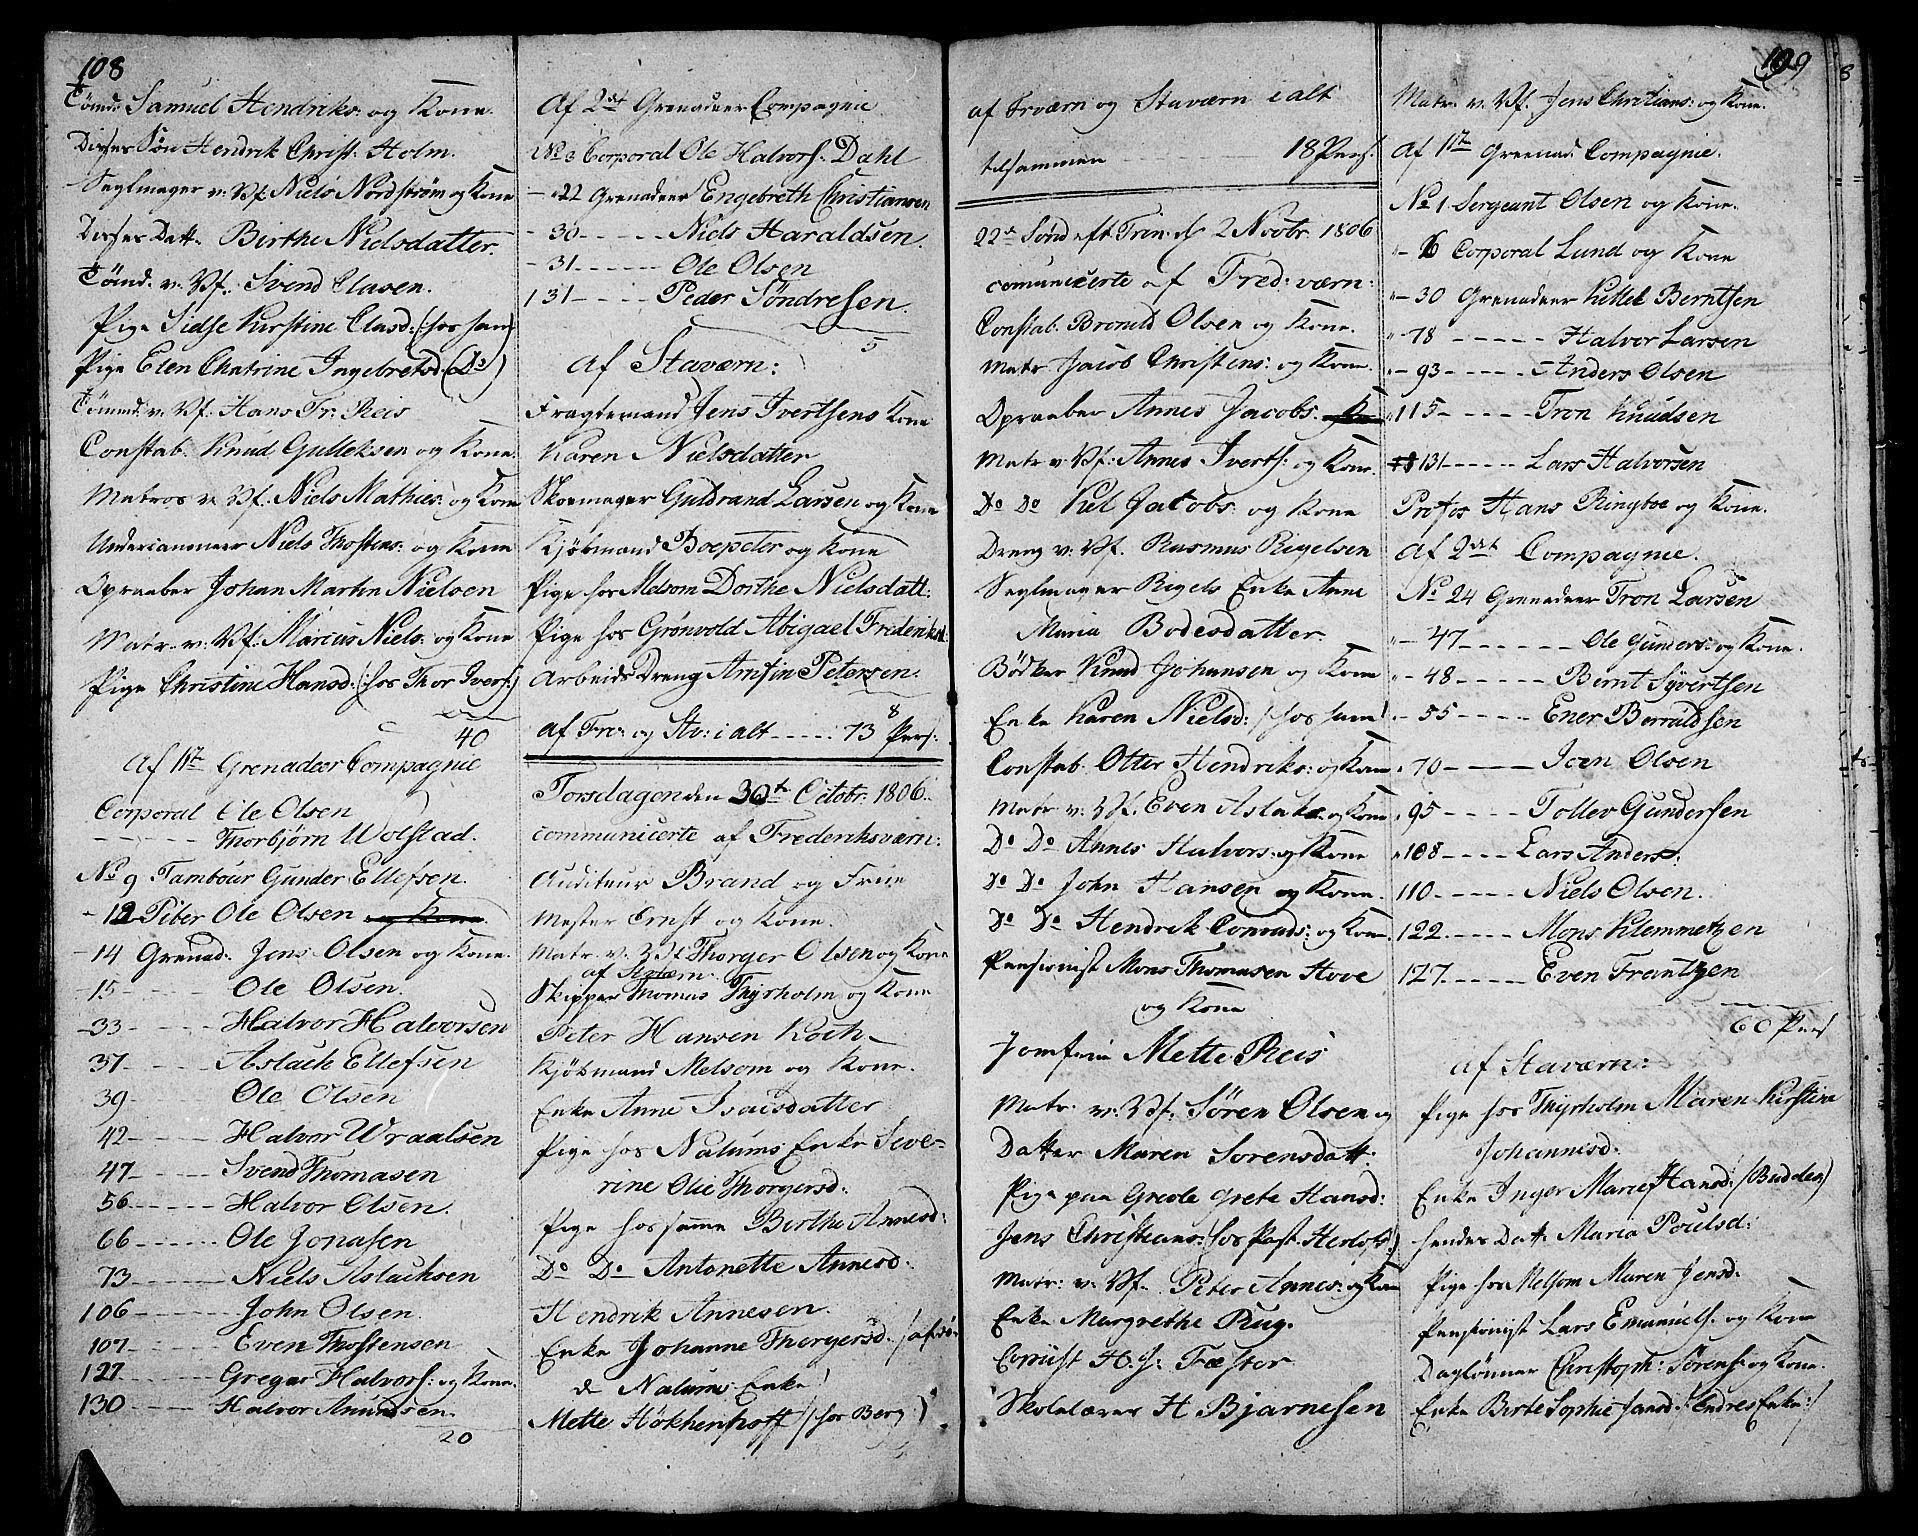 108
Tömd: Samuel Hendriks: og Kone.
Disses Sön Hendrik Christ: Holm.
Seglmager v: Vf. Niels Nordström og Kone
Disses Datt. Birthe Nielsdatter.
Tömd. v: Vf. Svend Clasen.
Pige Sidse Kirstine Clasd: (hos ham)
Pige Elen Chatrine Ingebretsd. (Do)
Tömmd: v: Vf. Hans Fr: Reis
Constab. Knud Gulleksen og Kone.
Matros v. Vf. Niels Mathies: og Kone
Undercanoneer Niels Thostens: og Kone
Opraaber Johan Martin Nielsen
Matr. v: Vf: Marcus Niels. og Kone
Pige Christine Hansd: (hos Thor Ivers:)
40
Af 1ste Grenadeer Compagnie
Corporal Ole Olsen
Thorbjørn Wolstad.
No 9 Tambour Gunder Ellefsen.
- 12 Piber Ole Olsen og Kone.
- 14 Grenad: Jens Olsen og Kone.
- 15 Ole Olsen.
- 33 Halvor Halvorsen
37 Aslach Ellefsen
39 Ole Olsen
42 Halvor Wraalsen
47 Svend Thomasen
56 Halvor Olsen.
66 Ole Jonasen
73 Niels Aslachsen
106 John Olsen.
107 Even Thostensen
127 Gregar Halvors: og Kone.
130 Halvor Amundsen.
20
Af 2det Grenadeer Compagnie
No 3 Corporal Ole Halvors: Dahl
- 22 Grenadeer Engebreth Christiansen
- 30 Niels Haraldsen.
- 31 Ole Olsen
131 Peder Söndresen.
5
Af Staværn:
Fragtemand Jens Ivertsens Kone
Karen Nielsdatter
Skoemager Guldrand Larsen og Kone
Kjöbmand Boepeter og Kone
Pige hos Melsom Dorthe Nielsdatt:
Pige hos Grönvold Abigael Frederiksd:
Arbeids Dreng Arnfin Petersen.
8
Af Fr: og Stv: i alt 73 Pers:
Torsdagen den 30te Octobr: 1806.
communicerte af Frederiksværn:
Auditeur Brand og Frue
Mester Ernst og Kone.
Matr. v. Vf Thorger Olsen og Kone
af Staværn.
Skipper Thomas Thyrholm og Kone
Peter Hansen Koch
Kjöbmand Melsom og Kone.
Enke Anne Isacsdatter
Pige hos Nalums Enke Seve-
rine Olie Thorgersd:
Pige hos samme Birthe Annesd:
Do Do Antonette Annesd:
Hendrik Annesen.
Enke Johanne Thorgersd.
Nalums Enke)
Mette Hökkenhoff (hos Berg)
109
af Frværn og Staværn i alt
tilsammen 18 Pers.
22de Sönd. eft. Trin: d 2 Novbr. 1806
comunicerte af Fred: værn:
Constab. Bronild Olsen og Kone.
Matr Jacob Christens: og Kone.
Opraaber Annes Jacobs.
Matr v. Vf: Annes Iverts: og Kone.
Do Do Kel Jacobs: og Kone
Dreng v: Vf. Rasmus Rigelsen
Seglmager Rigels Enke Anne
Maria Bodesdatter.
Bödker Knud Johansen og Kone
Enke Karen Nielsd: (hos ham)
Constab. Otter Hendriks: og Kone
Matr v: Vf. Even Aslaks: og Kone
Do Do Annes Halvors: og Kone
Do Do John Hansen og Kone.
Do Do Hendrik Conrads: og Kone
Pensionist Mons Thomasen Hove
og Kone
Jomfrue Mette Reis
Matr: v: Vf. Sören Olsen og
Datter Maren Sorensdatt:
Pige paa Greole Grete Hansd:
Jens Christians: (hos Past. Herlofs:)
Matr: v. Vf. Peter Annes: og Kone
Enke Margrethe Rug.
Copiist H. J. Fæster
Skolelærer H Bjarnesen
Matr: v: Vf. Jens Christians: og Kone.
Af 1ste Greenad: Compagnie.
No 1 Sergeant Olsen og Kone.
- 6 Corporal Lund og Kone
- 30 Grenadeer Killet Berntsen
- 78 Halvor Larsen
- 93 Anders Olsen
115 Tron Knudsen
131 Lars Halvorsen
Profos Hans Ringboe og Kone.
Af 2det Compagnie.
No 24 Grenadeer Tron Larsen
- 47 Ole Gunders: og Kone.
- 48 Bernt Syvertsen
- 55 Ener Berruldsen
70 Joen Olsen
95 Tollev Gundersen
108 Lars Anders:
110 Niels Olsen.
122 Mons Klemmetzen
127 Even Frantzen
60 Pers
Af Staværn:
Pige hos Thyrholm Maren Kirstine
Johannesd:
Enke Inger Marie Hansd: (Buddes)
hendes Datt: Maria Poulsd:
Pige hos Melsom Maren Jensd:
Pensionist Lars Emanuels. og Kone
Daglönner Christoph: Sörens: og Kone.
Enke Birte Sophie Hansd: (Endres Enke:)
8